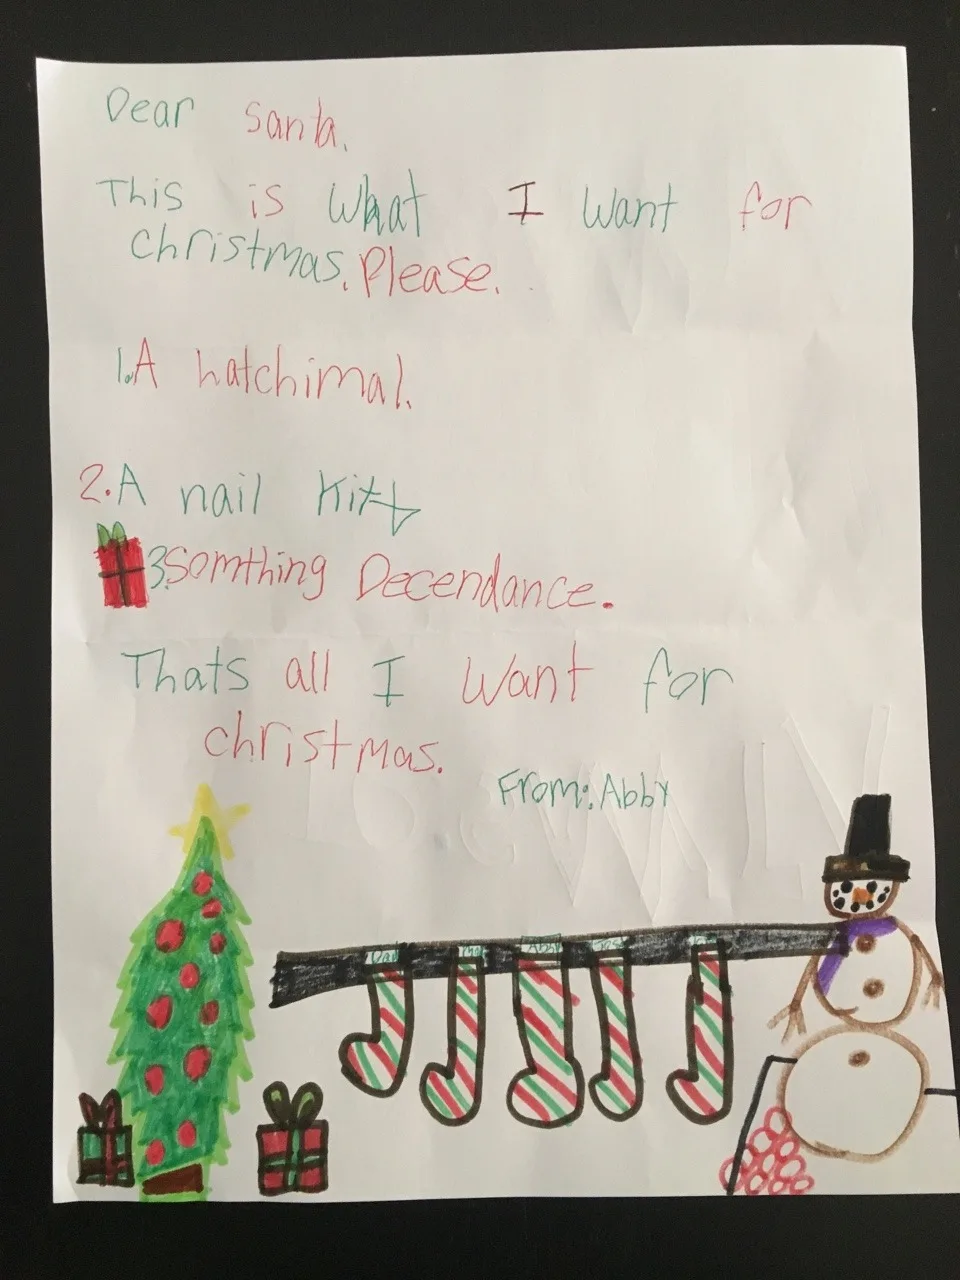 Dear Santa.
This is What I Want for
christmas. Please.
1. A hatchimal.
2. A nail kitt
3. Somthing Decendance.
Thats all I Want for
christmas.
From: Abby
Abby